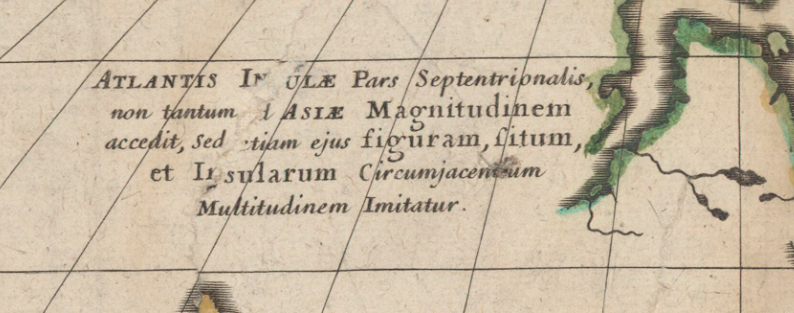 ATLANTIS INSULÆ Pars Septentrionalis,
non tantum ad ASIÆ Magnitudinem
accedit, Sed etiam ejus figuram, ſitum,
et Insularum Circumjacentium
Multitudinem Imitatur.